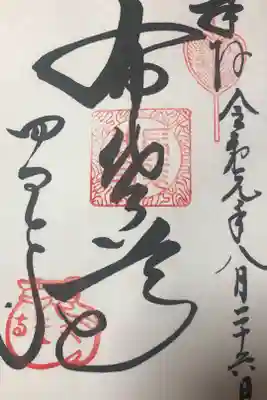 奉拝 令和元年八月二十六日
布袋尊
四天王寺